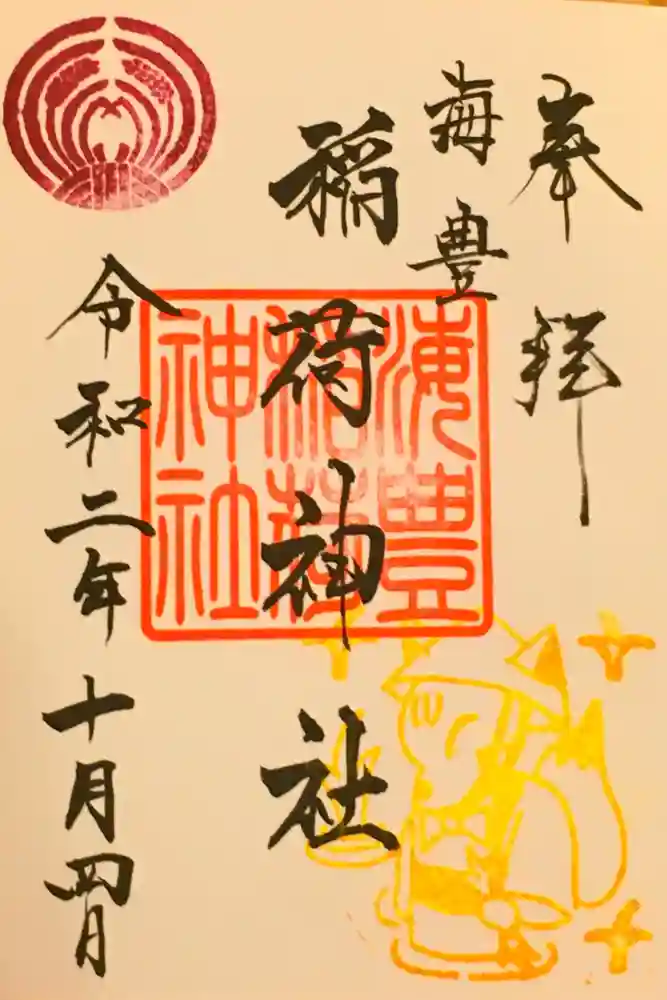 奉拝
海豊
稲荷神社
海豊
稲荷
神社
令和二年十月四日